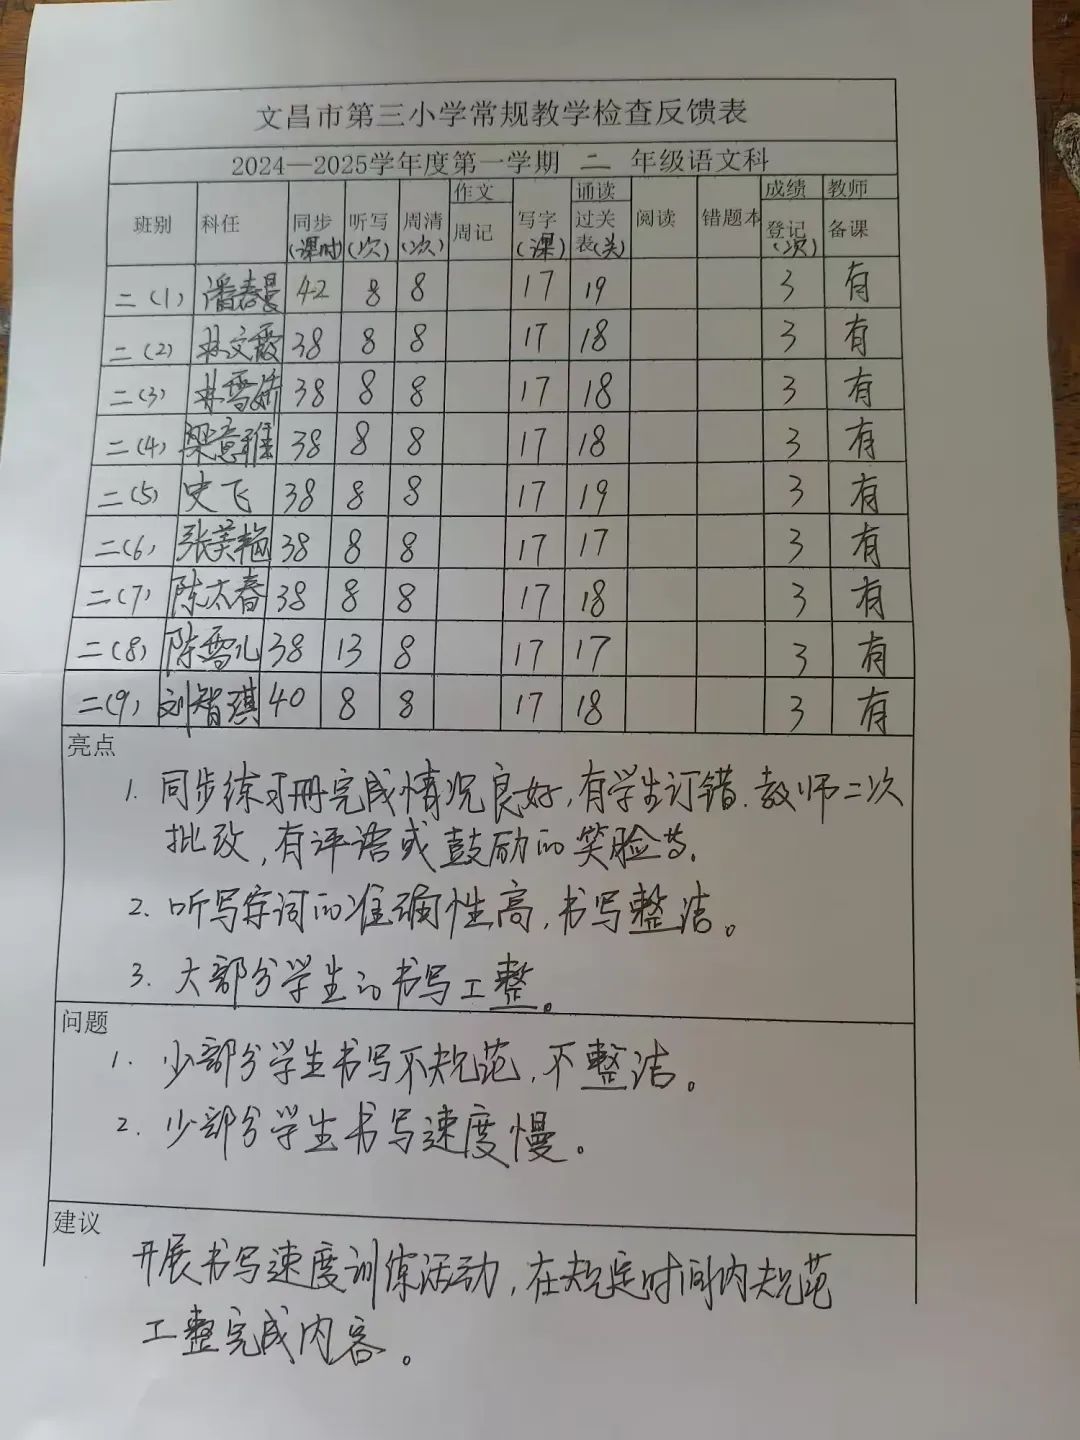 文昌市第三小学常规教学检查反馈表
2024—2025学年度第一学期 二 年级语文科
班别 科任 同步(课时) 听写(次) 周清(次) 作文周记 写字(课) 诵读过关表(关) 阅读 错题本 成绩登记(次) 教师备课
二(1) 潘春曼 42 8 8 17 19 3 有
二(2) 林文霞 38 8 8 17 18 3 有
二(3) 林雪娇 38 8 8 17 18 3 有
二(4) 梁意雅 38 8 8 17 18 3 有
二(5) 史飞 38 8 8 17 19 3 有
二(6) 张美艳 38 8 8 17 17 3 有
二(7) 陈太春 38 8 8 17 18 3 有
二(8) 陈雪儿 38 13 8 17 17 3 有
二(9) 刘智琪 40 8 8 17 18 3 有
亮点
1. 同步练习册完成情况良好,有学生订错.教师二次
批改,有评语或鼓励的笑脸等.
2. 听写字词的准确性高,书写整洁。
3. 大部分学生的书写工整。
问题
1. 少部分学生书写不规范,不整洁。
2. 少部分学生书写速度慢。
建议
开展书写速度训练活动,在规定时间内规范
工整完成内容。